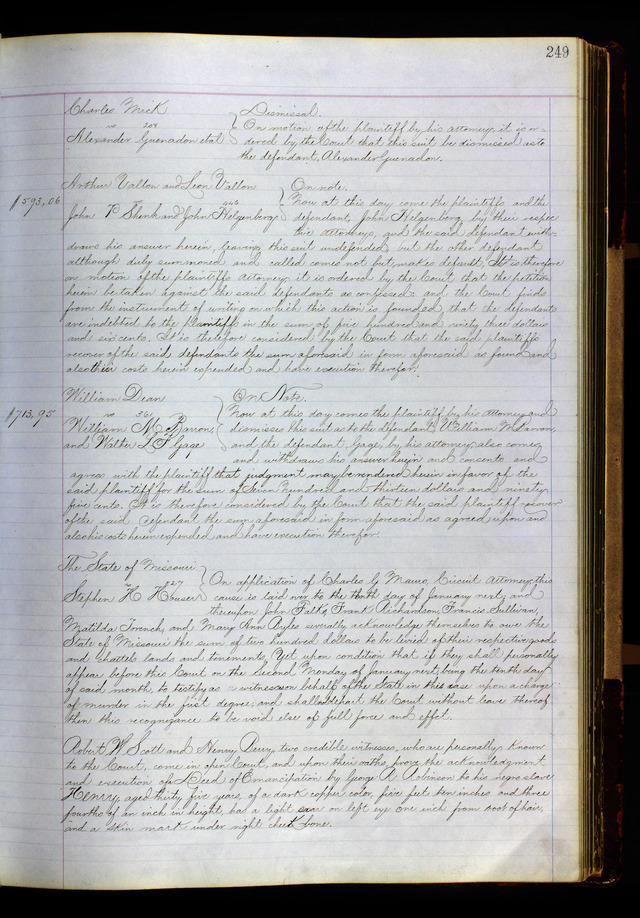 249
Charles Mick
vs 204
Alexander Guenadon et al
Dismissal.
On motion of the plaintiff by his attorney, it is or-
dered by the Court that this suit be dismissed as to
the defendant, Alexander Guenadon.
$593,06
Arthur Vallon and Leon Vallon
John P Shenk and John Helgenberg
On note.
Now at this day come the plaintiffs and the
defendant, John Helgenberg by their respec
tive attorneys, and the said defendant with-
draws his answer herein leaving this suit undefended but the other defendant
although duly summoned and called comes not but makes default. It is therefore
on motion of the plaintiffs attorney, it is ordered by the Court that the petition
herein be taken against the said defendants as confessed: and the Court finds
from the instrument of writing on which this action is founded, that the defendants
are indebted to the plaintiff in the sum of five hundred and ninety three dollars
and six cents. It is therefore considered by the Court that the said plaintiffs
recover of the said defendants the sum aforesaid in form aforesaid as found and
also their costs herein expended and have execution therefor.
$713,95
William Dean
vs 361
William M. Barron,
and Walter L F Gage
On Note.
Now at this day comes the plaintiff by his attorney and
dismisses this suit as to the defendant William M Barron,
and the defendant Gage, by his attorney also comes
and withdraws his answer herein and consents and
agrees with the plaintiff that judgment may be rendered herein in favor of the
said plaintiff for the sum of Seven Hundred and thirteen dollars and ninety
five cents. It is therefore considered by the Court that the said plaintiff recover
of the said Defendant the sum aforesaid in form aforesaid as agreed upon and
also his costs herein expended and have execution therefor.
The State of Missouri
27
Stephen H Houser
On application of Charles G Mauro, Circuit Attorney, this
cause is laid over to the tenth day of January next, and
thereupon John Falks, Frank Richardson, Francis Sullivan,
Matilda French, and Mary Ann Ayles severally acknowledge themselves to owe the
State of Missouri the sum of two hundred dollars to be levied of their respective goods
and chattels lands and tenements, Yet upon condition that if they shall personally
appear before this Court on the second Monday of January next, being the tenth day
of said month, to testify as a witness on behalf of the State in this case upon a charge
of murder in the first degree, and shall not depart the Court without leave thereof
then this recognizance to be void else of full force and effect.
Robert W Scott and Henry Dewy, two credible witnesses, who are personally known
to the Court, come in open Court, and upon their oaths, prove the acknowledgment
and execution of a Deed of Emancipation by George R Robinson to his negro slave
Henry, aged thirty five years, of a dark copper color, five feet ten inches and three
fourths of an inch in height, has a light scar on left eye one inch from root of hair,
and a skin mark under right cheek bone.